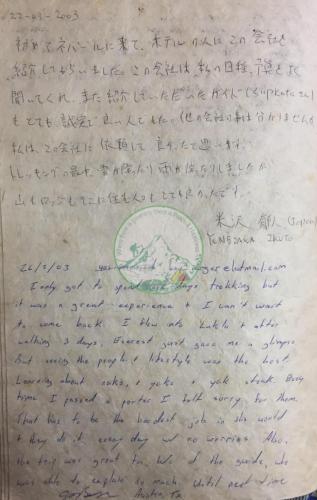 22-03-2003
初めてネパールに来て、ホテルの人に この会社を
紹介してもらいました。この会社は、私の目的、予算をよく
聞いてくれ、また紹介していただいたガイド
もとても誠実で良い人でした。他の会社の事は分かりませんが
私は、この会社に依頼して良かったと思います。
トレッキングの最中 雪が降ったり 雨が降ったりしましたが
山も そこに住む人も とても良かったです。
米沢 (Japan)
YONEZAWA IKUTO
26/3/03 @hotmail.com
I only got to spend days trekking but
it was a great experience & I can't wait
to come back. I flew into Lukla & after
walking 3 days, Everest just gave me a glimpse
But seeing the people & lifestyle was the best.
Learning about & yaks & yak steak. Every
time I passed a porter I felt sorry for them.
That has to be the hardest job in the world
& they do it every day w/ no worries. Also,
the trip was great for the guide, who
was able to explain so much. Until next time
Austin, Tx